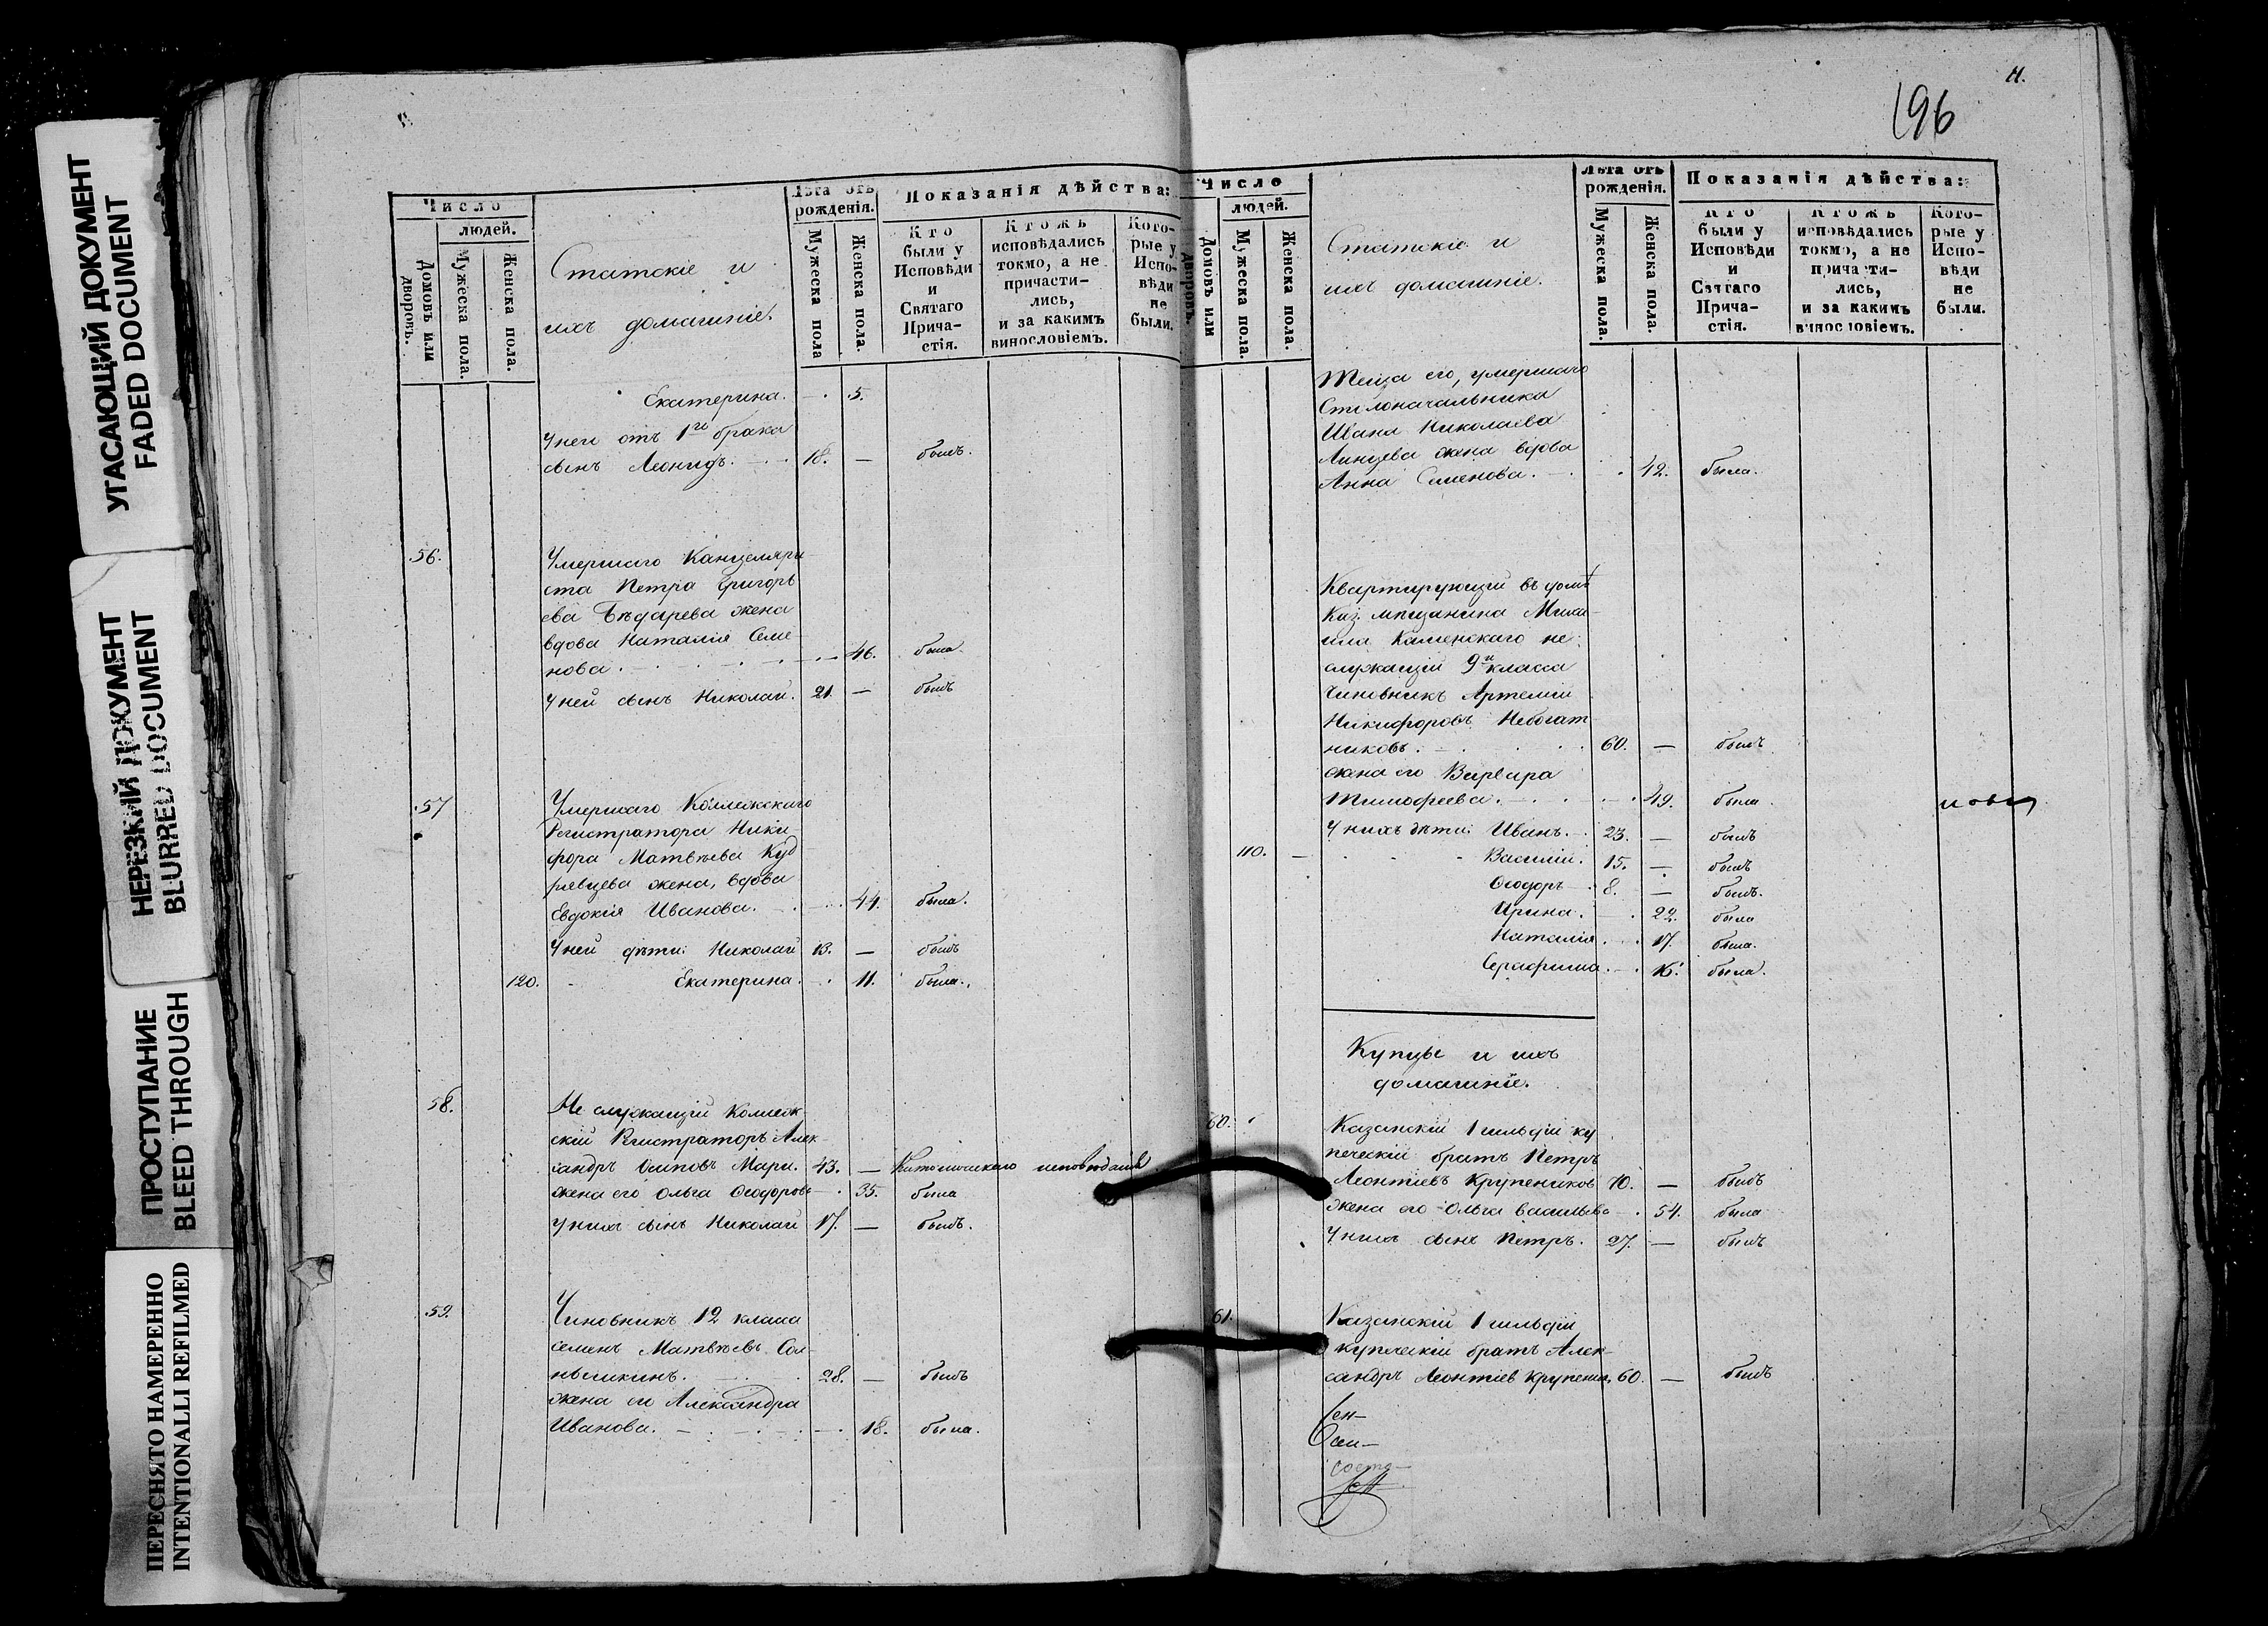 УГАСАЮЩИЙ ДОКУМЕНТ
FADED DOCUMENT
НЕРЕЗКИЙ ДОКУМЕНТ
BLURRED DOCUMENT
ПРОСТУПАНИЕ
BLEED THROUGH
ПЕРЕСНЯТО НАМЕРЕННО
INTENTIONALLI REFILMED
Число
людей.
Домовъ или дворовъ.
Мужеска пола.
Женска пола.
Статскіе и
ихъ домашніе.
Лѣта отъ
рожденія.
Мужеска пола
Женска пола.
Показанія дѣйства:
Кто
были у
Исповѣди
и
Святаго
Прича-
стія.
Ктожъ
исповѣдались
токмо, а не
причасти-
лись,
и за какимъ
винословіемъ.
Кото-
рые у
Испо-
вѣди
не
были.
Екатерина. 5.
У него отъ 1го брака
сынъ Леонидъ. 18. — былъ.
56. Умершаго Канцеляри-
ста Петра Григорь
ева Бѣдарева жена
вдова Наталія Семе-
нова. 46. была.
У ней сынъ Николай. 21. — былъ
57 Умершаго Коллежскаго
Регистратора Ники-
фора Матвѣева Куд-
рявцева жена, вдова
Евдокія Иванова. 44. была.
У ней дѣти: Николай 13. — былъ
120. Екатерина. 11. была.
58. Не служащій Коллеж-
скій Регистраторъ Алек-
сандръ Осиповъ Мари. 43. — Католическаго исповѣданія
жена его Ольга Ѳеодорова 35. была
У нихъ сынъ Николай 17. — былъ.
59. Чиновникъ 12 класса
Семенъ Матвѣевъ Сол-
нышкинъ. 28. — былъ
жена его Александра
Иванова. 18. была.
11.
196
Число
людей.
Домовъ или дворовъ.
Мужеска пола.
Женска пола.
Статскіе и
ихъ домашніе.
Лѣта отъ
рожденія.
Мужеска пола.
Женска пола.
Показанія дѣйства:
Кто
были у
Исповѣди
и
Святаго
Прича-
стія.
Ктожъ
исповѣдались
токмо, а не
причасти-
лись,
и за какимъ
винословіемъ.
Кото-
рые у
Испо-
вѣди
не
были.
Теща его, умершаго
Столоначальника
Ивана Николаева
жена вдова
Анна Семенова. 42. была.
Квартирующій въ домѣ
Каз. мѣщанина Миха-
ила Каменскаго не
служащій 9й класса
Чиновникъ Артемій
Никифоровъ Небогат-
никовъ. 60. — былъ
жена его Варвара
Тимофеева. 49. была.
У нихъ дѣти: Иванъ. 23. — былъ
110. — Василій. 15. — былъ
Ѳеодоръ 8. — былъ.
Ирина. 22. была
Наталія. 17. была.
Серафима. 16. была.
Купцы и ихъ
домашніе.
60. Казанскій 1 гильдіи ку
печескій братъ Петръ
Леонтіевъ Крупениковъ 70. — былъ
жена его Ольга Васильева 54. была
У нихъ сынъ Петръ. 27. — былъ
61. Казанскій 1 гильдіи
купеческій братъ Алек-
сандръ Леонтіев Крупеник. 60. — былъ